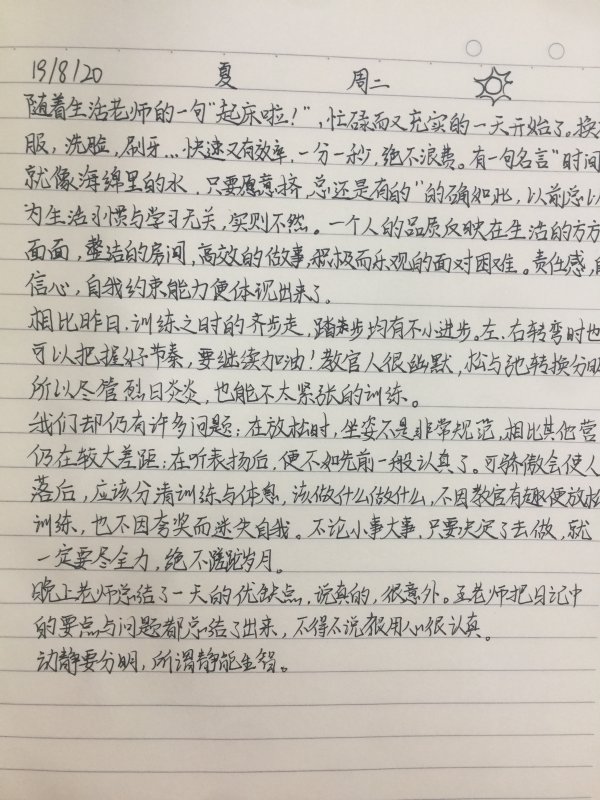 19/8/20 夏 周二
随着生活老师的一句"起床啦!",忙碌而又充实的一天开始了。换
服,洗脸,刷牙...快速又有效率,一分一秒,绝不浪费。有一句名言"时间
就像海绵里的水,只要愿意挤,总还是有的"的确如此,以前总以
为生活习惯与学习无关,实则不然。一个人的品质反映在生活的方方
面面,整洁的房间,高效的做事,积极而乐观的面对困难。责任感,自
信心,自我约束能力便体现出来了。
相比昨日,训练之时的齐步走,踏步均有不小进步。左、右转弯时也
可以把握好节奏,要继续加油!教官人很幽默,松与弛转换分明
所以尽管烈日炎炎,也能不太紧张的训练。
我们却仍有许多问题:在放松时,坐姿不是非常规范,相比其他营
仍在较大差距;在听表扬后,便不如先前一般认真了。可骄傲会使人
落后,应该分清训练与休息,该做什么做什么,不因教官有趣便放松
训练,也不因夸奖而迷失自我。不论小事大事,只要决定了去做,就
一定要尽全力,绝不蹉跎岁月。
晚上老师总结了一天的优缺点,说真的,很意外。王老师把日记中
的要点与问题都总结了出来,不得不说很用心很认真。
动静要分明,所谓静能生智。